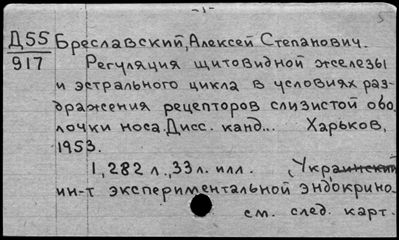 -1-
5
Д55 Бреславский, Алексей Степанович.
917 Регуляция щитовидной железы
и эстрального цикла в условиях раз-
дражения рецепторов слизистой обо-
лочки носа. Дисс. канд... Харьков,
1953.
1, 282 л., 33 л. илл. (Украинский
ин-т экспериментальной эндокрино-
см. след. карт.